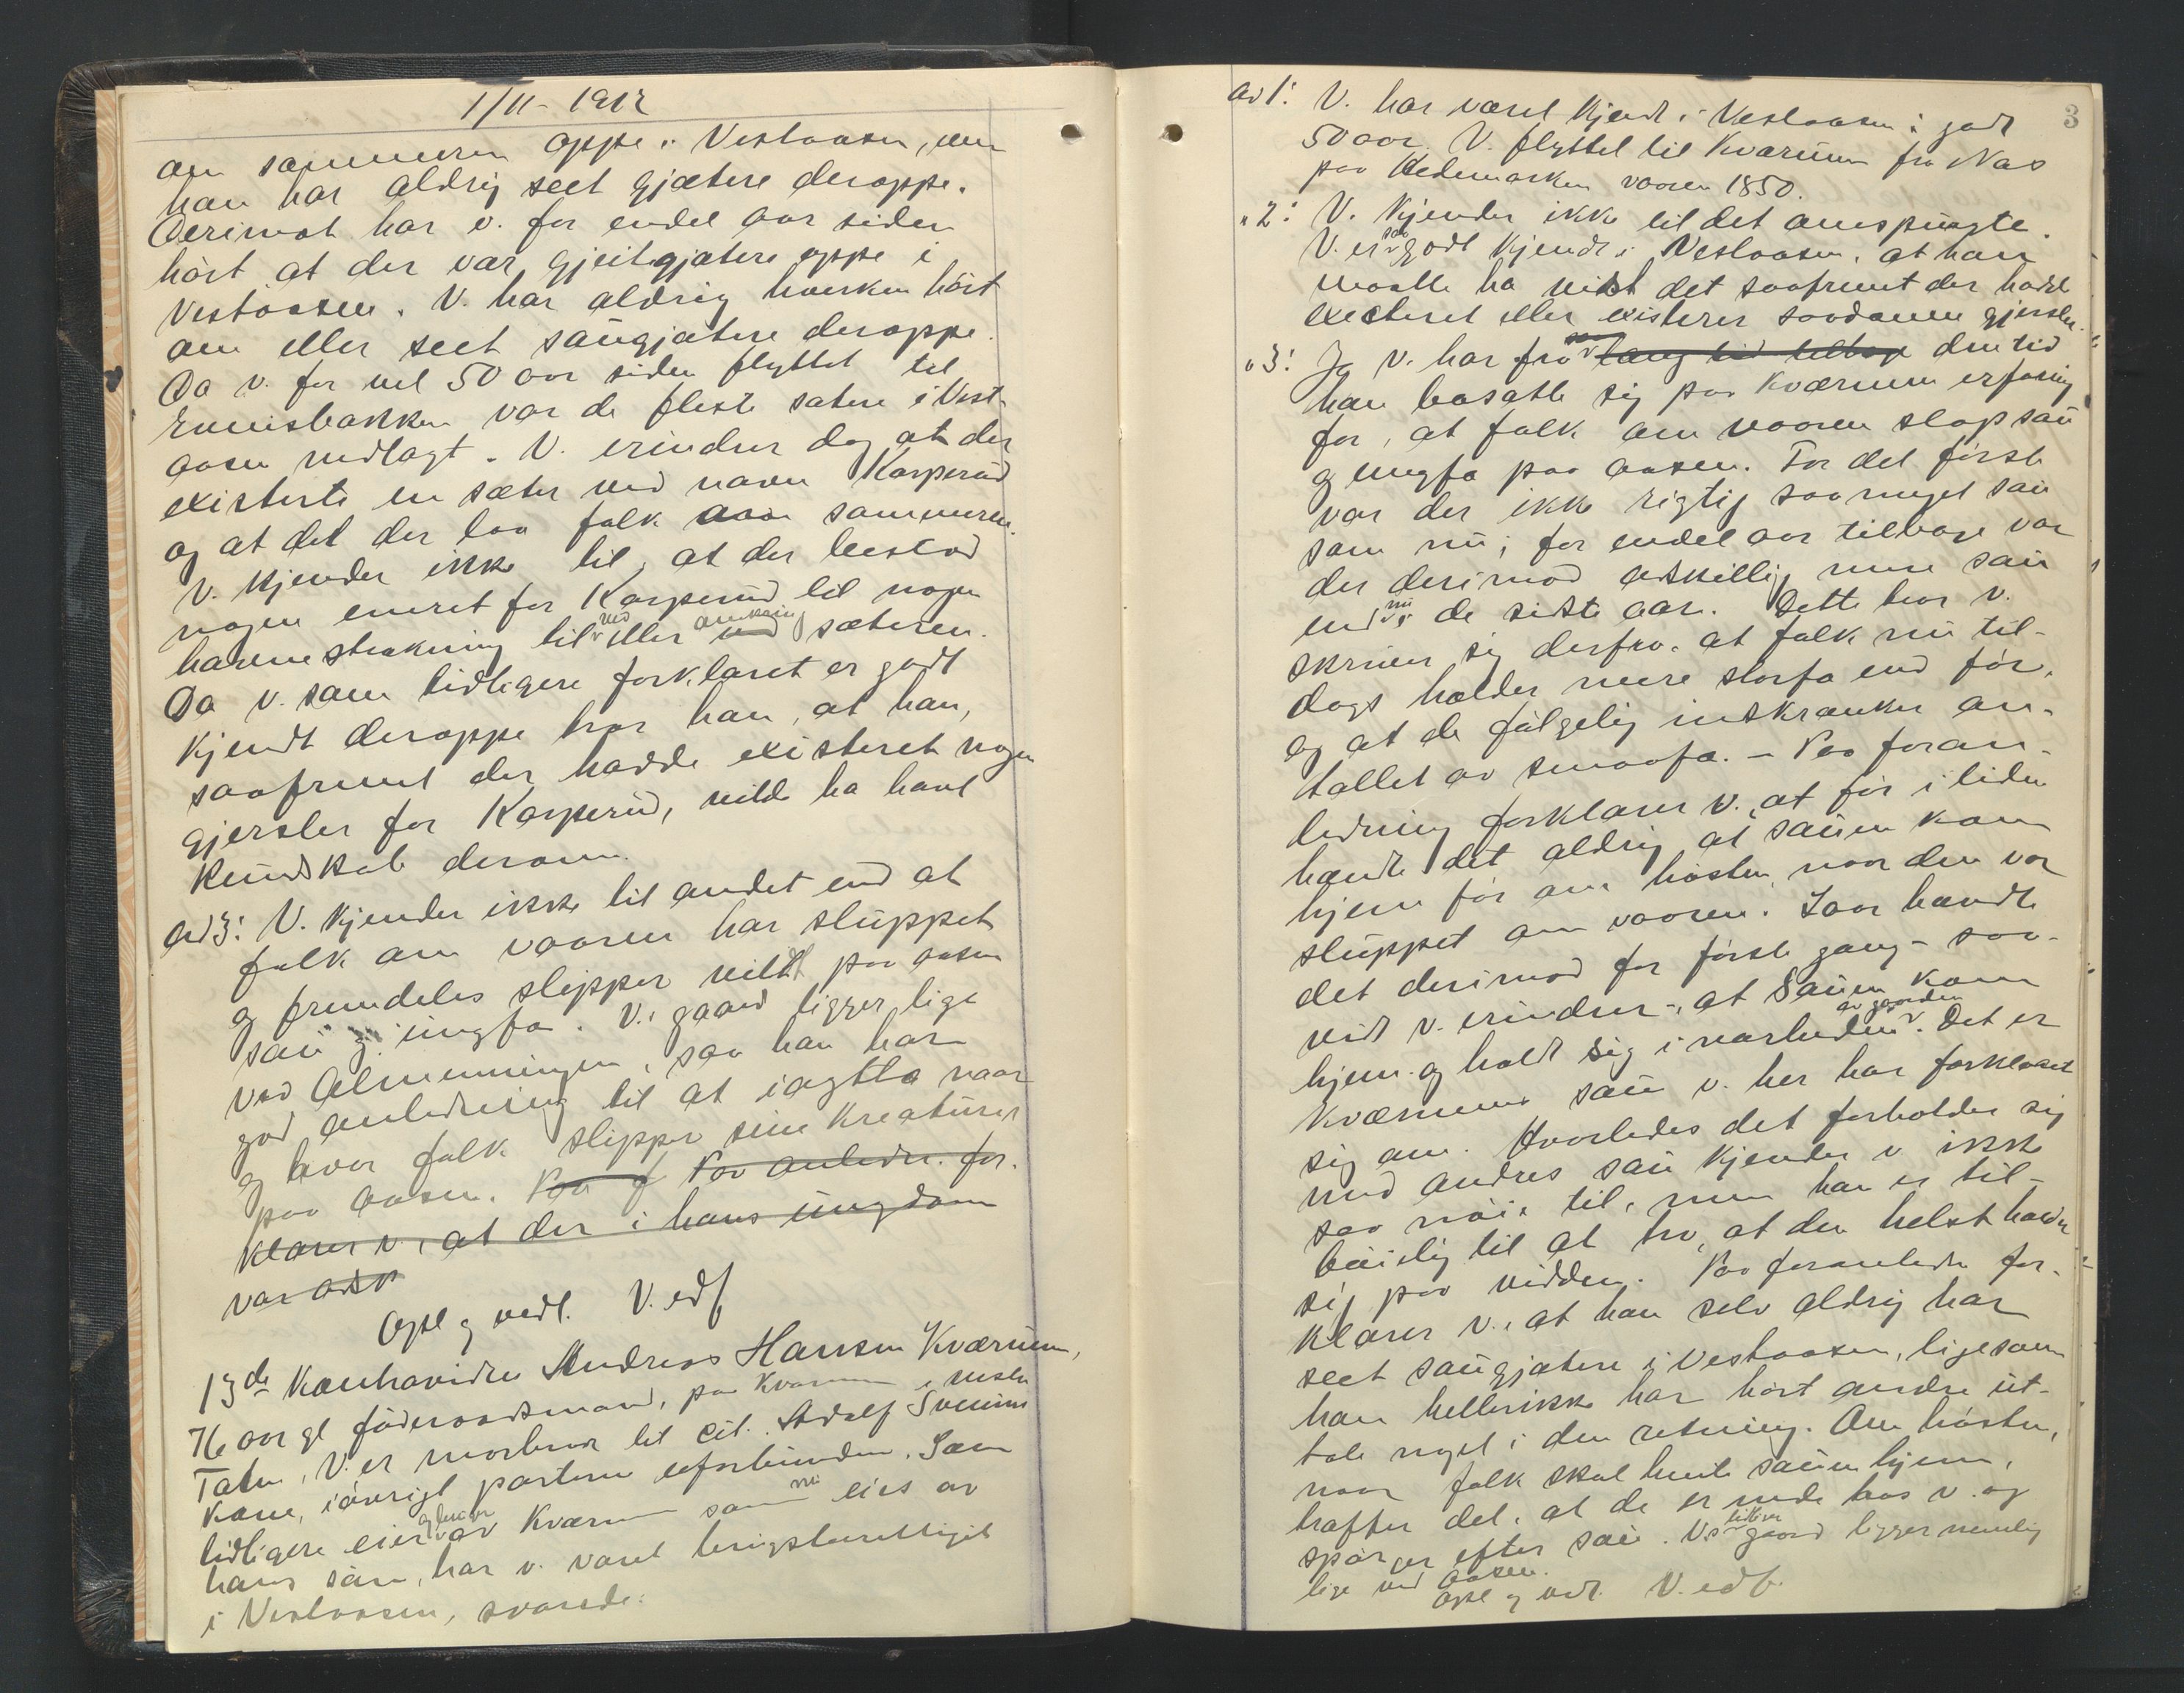 1/11 - 1912
om sommeren oppe i Vestaasen, men
han har aldrig seet gjætere deroppe.
Derimot har v. for endel aar siden
hørt at der var gjeitegjætere oppe i
Vestaasen. V. har aldrig hverken hørt
om eller seet saugjætere deroppe.
Da v. for vel 50 aar siden flyttet til
Ennisbakken var de fleste sætere i Vest-
aasen nedlagt. V. erindrer dog at der
existerte en sæter ved navn Karperud
og at det der laa folk om sommeren.
V. kjender ikke til, at der bestod
nogen eneret for Karperud til nogen
havnestrækning til ved eller omkring sæteren.
Da v. som tidligere forklaret er godt
kjendt deroppe tror han, at han,
saafremt der hadde existeret nogen
gjersler for Karperud, vilde ha havt
kundskab derom.
ad 3: V. kjender ikke til andet end at
folk om vaaren har sluppet
og fremdeles slipper vildt paa aasen
sau og ungfæ. V.s gaard ligger lige
ved Almenningen, saa han har
god anledning til at iagtta naar
og hvor folk slipper sine kreaturer
paa aasen. Paa f Paa anledn. for-
klarer v., at der i hans ungdom
var adsk
Opl og vedt. V. edf
13de Kontravidne Andreas Hansen Kværnum,
76 aar gl føderaadsmand, paa Kværnum i nestre
Toten. V. er morbror til cit. Adolf Svenins
kone, iøvrigt partene uforbunden. Som
tidligere eier og bruker av Kværnum som nu eies av
hans søn, har v. været brugsberettiget
i Vestaasen, svarede:
3
ad 1: V. har været kjendt i Vestaasen i godt
50 aar. V. flyttet til Kværnum fra Nes
paa Hedemarken vaaren 1850.
" 2: V. kjender ikke til det omspurgte.
V. er saa godt kjendt i Vestaasen, at han
maatte ha vidst det saafremt der hadde
existeret eller existerer saadanne gjersler.
" 3: Ja v. har fra lang tid tilbage den tid
han bosatte sig paa Kværnum erfaring
for, at folk om vaaren slap sau
og ungfæ paa aasen. For det første
var der ikke rigtig saa meget sau
som nu; for endel aar tilbage var
der derimod adskillig mere sau
end nu i de sidste aar. Dette tror v.
skriver sig derfra, at folk nu til-
dags holder mere storfæ end før,
og at de følgelig indskrænker an-
tallet av smaafæ. - Paa foran-
ledning forklarer v. at før i tiden
hændte det aldrig at sauen kom
hjem før om høsten, naar den var
sluppet om vaaren. Iaar hændte
det derimod for første gang - saa-
vidt v. erindrer -, at sauen kom
hjem og holdt sig i nærheden av gaarden. Det er
Kværnums sau v. her har forklaret
sig om. Hvorledes det forholder sig
med andres sau kjender v. ikke
saa nøie til, men han er til-
bøielig til at tro, at den helst holder
sig paa vidden. Paa foranledn for-
klarer v., at han selv aldrig har
seet saugjætere i Vestaasen, ligesom
han hellerikke har hørt andre ut-
tale noget i den retning. Om høsten,
naar folk skal hente sauen hjem,
træffer det, at de er nede hos v. og
spørger efter sau. V.s gaard ligger nemlig
lige ved aasen.
Opl og vedt. V. edf.